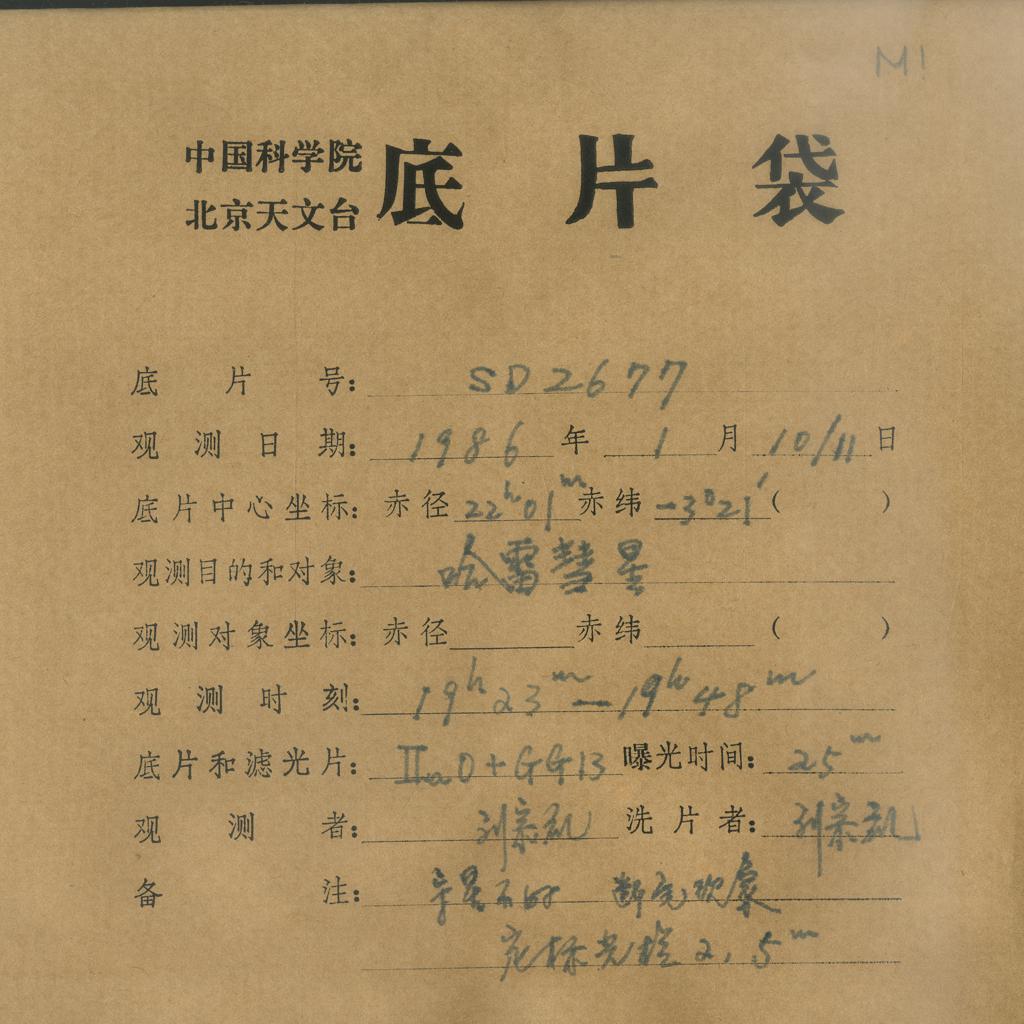 M!
中国科学院
北京天文台 底片袋
底片号: SD2677
观测日期: 1986年1月10/11日
底片中心坐标: 赤径 22ʰ01ᵐ 赤纬 -3°21′( )
观测目的和对象: 哈雷彗星
观测对象坐标: 赤径 赤纬 ( )
观测时刻: 19ʰ23ᵐ—19ʰ48ᵐ
底片和滤光片: IIaO+GG13 曝光时间: 25ᵐ
观测者: 刘宗 洗片者: 刘宗
备注: 导星不
定标光 2,5ᵐ